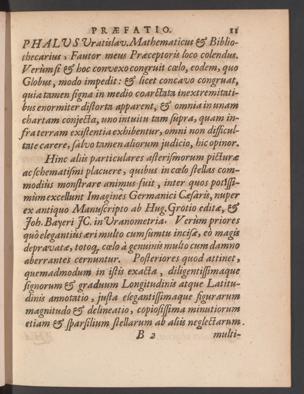 PRÆFATIO. 11
PHALVS Vratislav. Mathematicus & Biblio-
thecarius, Fautor meus Præceptoris loco colendus.
Verùm si & hoc convexo congruit cœlo, eodem, quo
Globus, modo impedit: & licet concavo congruat,
quia tamen signa in medio coarctata in extremitati-
bus enormiter distorta apparent, & omnia in unam
chartam conjecta, uno intuitu tam supra, quam in-
fra terram existentia exhibentur, omni non difficul-
tate carere, salvo tamen aliorum judicio, hic opinor.
Hinc aliis particulares asterismorum picturæ
ac schematismi placuere, quibus in cœlo stellas com-
modiùs monstrare animus fuit, inter quos potissi-
mùm excellunt Imagines Germanici Cæsaris, nuper
ex antiquo Manuscripto ab Hug. Grotio editæ, &
Joh. Bayeri JC. in Uranometria. Verùm priores
quò elegantius æri multo cum sumtu incisæ, eò magis
depravatæ, totoq, cœlo à genuinis multo cum damno
aberrantes cernuntur. Posteriores quod attinet,
quemadmodum in istis exacta, diligentissimaque
signorum & graduum Longitudinis atque Latitu-
dinis annotatio, justa elegantissimaque figurarum
magnitudo & delineatio, copiosissima minutiorum
etiam & sparsilium stellarum ab aliis neglectarum
B 2 multi-